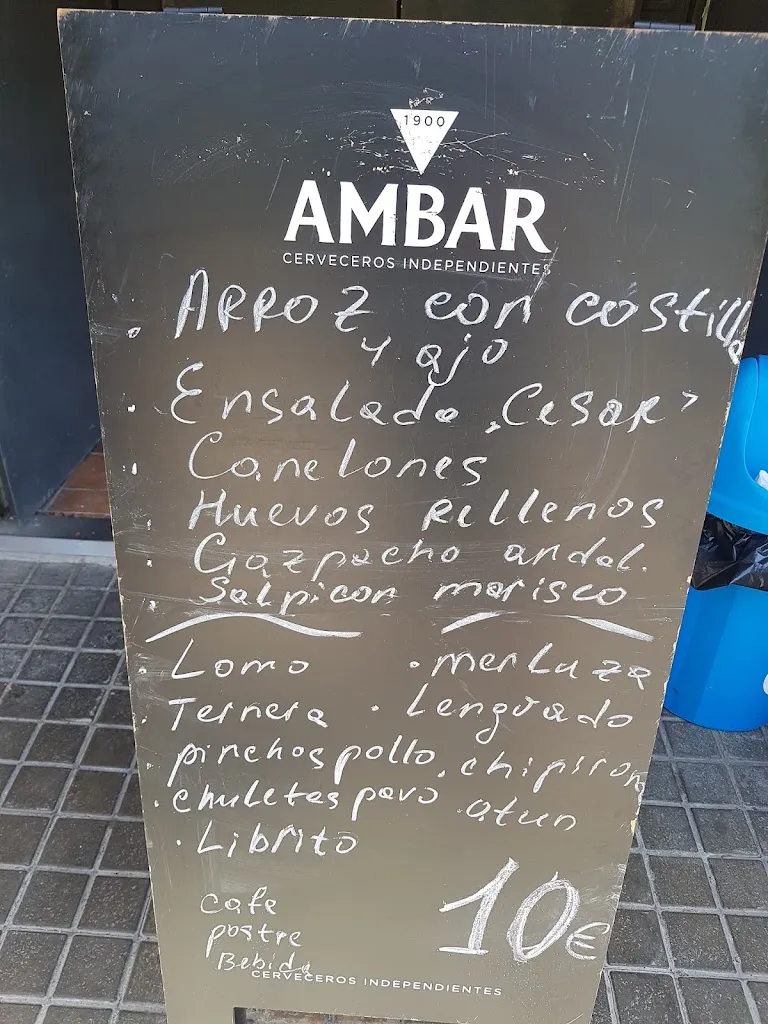 1900
AMBAR
CERVECEROS INDEPENDIENTES
· ARROZ con costilla
y ajo
· Ensalada "Cesar"
· Canelones
· Huevos Rellenos
· Gazpacho andal.
· Salpicon marisco
· Lomo · merluza
· Ternera · Lenguado
pinchos pollo · chipiron
· chuletas pavo · atun
· Librito
cafe
postre
Bebida
10€
CERVECEROS INDEPENDIENTES